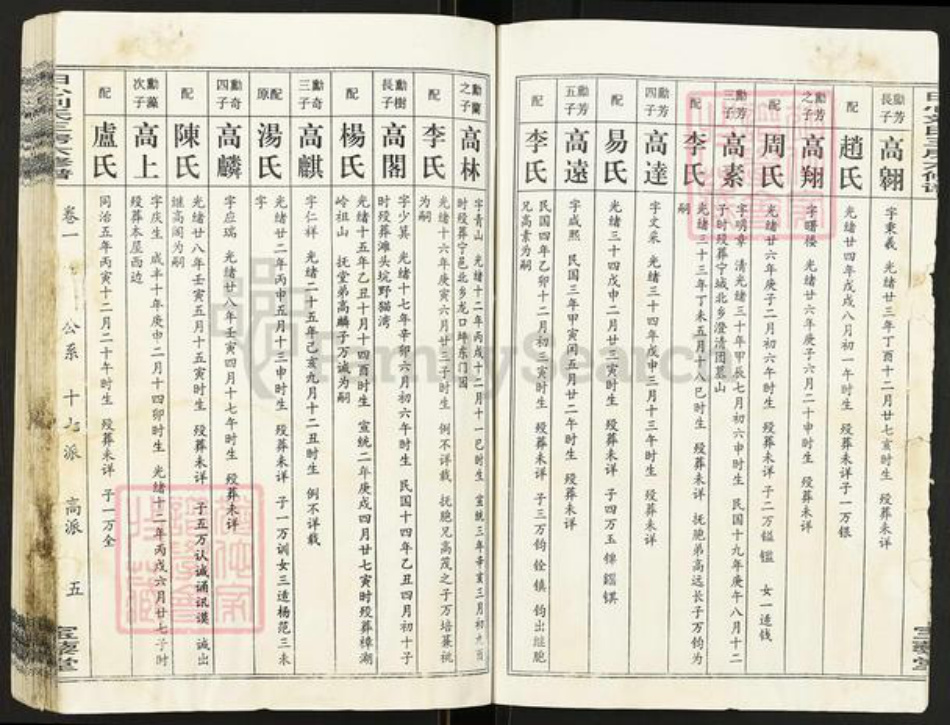 勳芳長子 高翱 字秉羲 光緒廿三年丁酉十二月廿七亥时生 殁葬未详
配 趙氏 光緒廿四年戊戌八月初一年时生 殁葬未详子一万银
勳芳之子 高翔 字曙楼 光緒廿六年庚子六月二十申时生 殁葬未详
配 周氏 光緒廿六年庚子二月初六年时生 殁葬未详 子二万镒 女一适钱
勳芳三子 高素 字明章 清光緒三十年甲辰七月初六申时生 民国十九年庚午八月十二
子时殁葬宁城北乡澄清团墓山
配 李氏 光緒三十三年丁未五月十八巳时生 殁葬未详 抚胞弟高远长子万钧为
嗣
勳芳四子 高達 字文采 光緒三十四年戊申三月十三年时生 殁葬未详
配 易氏 光緒三十四戊申二月廿三寅时生 殁葬未详 子四万玉
勳芳五子 高遠 字咸熙 民国三年甲寅闰五月廿二年时生 殁葬未详
配 李氏 民国四年乙卯十二月初三寅时生 殁葬未详 子三万钧 铨 镇 钧出继胞
兄高素为嗣
勳蘭之子 高林 字青山 光緒十二年丙戌十二月十一巳时生 宣統三年辛亥三月初九
时殁葬宁邑北乡龙口坪东门园
配 李氏 光緒十六年庚寅六月廿三子时生 例不详载 抚胞兄高茂之子万培兼祧
为嗣
勳樹長子 高閣 字少箕 光緒十七年辛卯六月初六年时生 民国十四年乙丑四月初十子
时殁葬滩头坑野猫湾
配 楊氏 光緒十五年乙丑十月十四酉时生 宣統二年庚戌四月廿七寅时殁葬樟湖
岭祖山 抚堂弟高麟子万诚为嗣
勳奇三子 高麒 字仁祥 光緒二十五年己亥九月十二丑时生 例不详载
原配 湯氏 光緒廿二年丙申五月十三申时生 殁葬未详 子一万训女三适杨范三未
字
勳奇四子 高麟 字应瑞 光緒廿八年壬寅四月十七年时生 殁葬未详
配 陳氏 光緒廿八年壬寅五月十五寅时生 殁葬未详 子五万认诚诵讯谟 诚出
继高阁为嗣
勳藻次子 高上 字庆生 咸丰十年庚申二月十四卯时生 光緒十二年丙戌六月廿七子时
殁葬本屋西边
配 盧氏 同治五年丙寅十二月二十年时生 殁葬未详 子一万全
卷一 公系 十七派 高派 五
FamilySearch